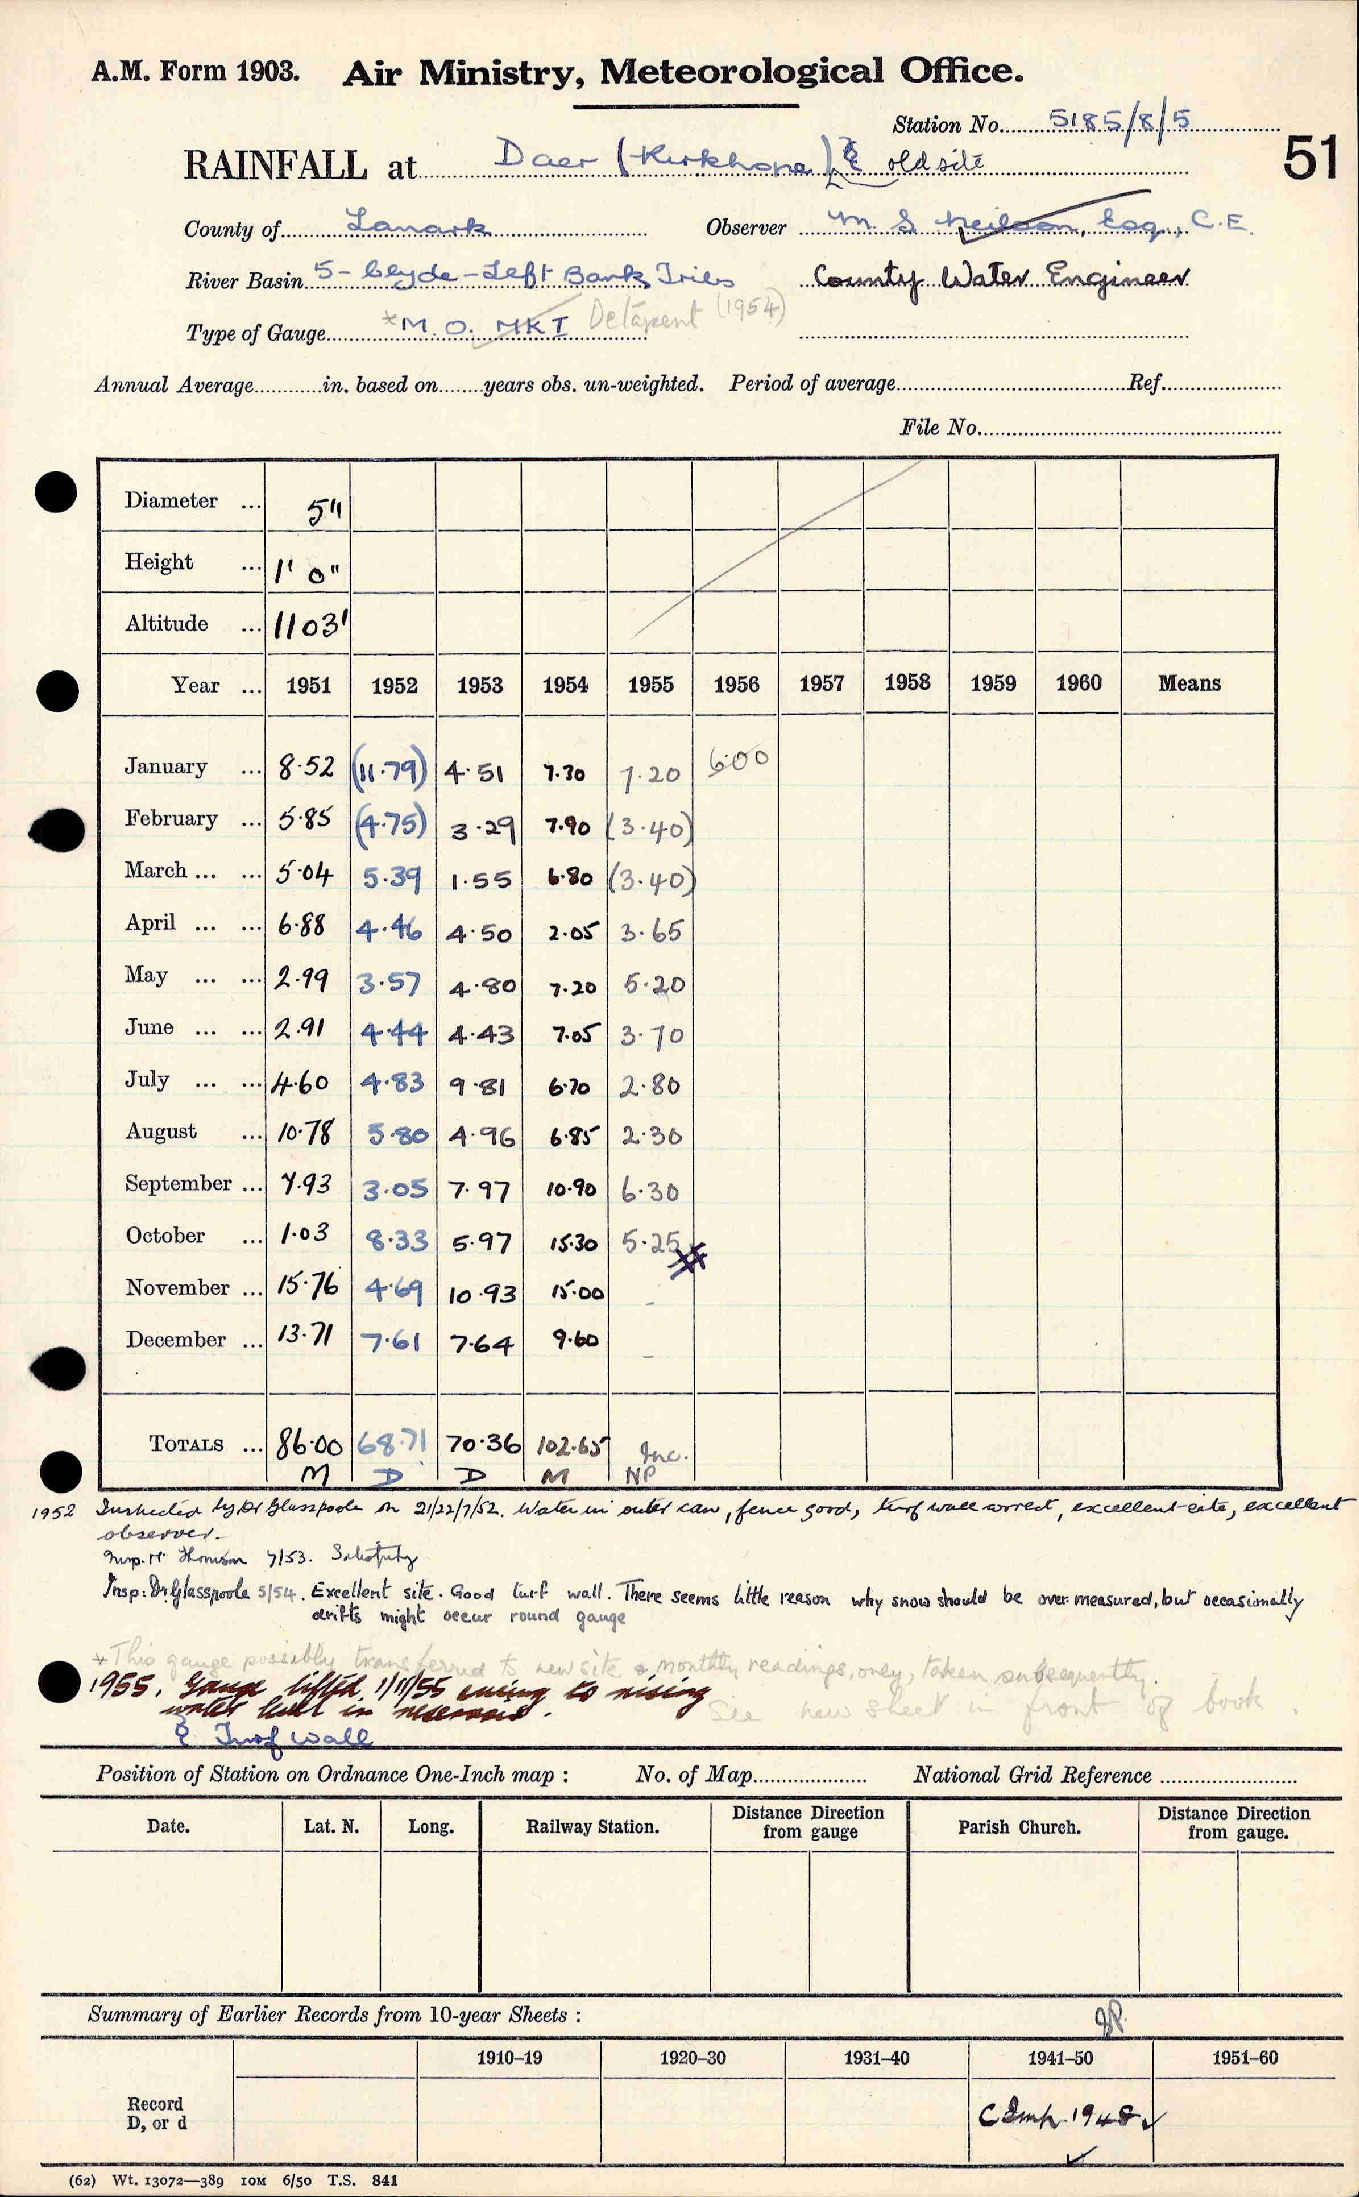 A.M. Form 1903. Air Ministry, Meteorological Office.
Station No. 5185/8/5
RAINFALL at Daer (Kirkhope) old site
51
County of Lanark Observer M. S. Neilson, Esq., C.E.
River Basin 5 - Clyde - Left Bank Tribs County Water Engineer
Type of Gauge *M.O. MK I Octapent (1954)
Annual Average in. based on years obs. un-weighted. Period of average Ref.
File No.
Diameter ... 5"
Height ... 1' 0"
Altitude ... 1103'
Year ... 1951 1952 1953 1954 1955 1956 1957 1958 1959 1960 Means
January ... 8.52 (11.79) 4.51 7.30 7.20 6.00
February ... 5.85 (4.75) 3.29 7.90 (3.40)
March ... ... 5.04 5.39 1.55 6.80 (3.40)
April ... ... 6.88 4.46 4.50 2.05 3.65
May ... ... 2.99 3.57 4.80 7.20 5.20
June ... ... 2.91 4.44 4.43 7.05 3.70
July ... ... 4.60 4.83 9.81 6.70 2.80
August ... 10.78 5.80 4.96 6.85 2.30
September ... 7.93 3.05 7.97 10.90 6.30
October ... 1.03 8.33 5.97 15.30 5.25
November ... 15.76 4.69 10.93 15.00 -
December ... 13.71 7.61 7.64 9.60 -
TOTALS ... 86.00 68.71 70.36 102.65 Inc.
M D D M NP
1952 Inspected by Dr Glasspoole on 21/22/7/52. Water in outer can, fence good, turf wall correct, excellent site, excellent
observer.
Insp. Mr Thomson 7/53. Satisfactory
Insp: Dr. Glasspoole 5/54. Excellent site. Good turf wall. There seems little reason why snow should be over measured, but occasionally
drifts might occur round gauge
*This gauge possibly transferred to new site & monthly readings, only, taken subsequently.
See new sheet in front of book.
1955. Gauge lifted 1/11/55 owing to rising
water level in reservoir.
& Turf wall
Position of Station on Ordnance One-Inch map : No. of Map National Grid Reference
Date. Lat. N. Long. Railway Station. Distance Direction from gauge Parish Church. Distance Direction from gauge.
Summary of Earlier Records from 10-year Sheets :
1910–19 1920–30 1931–40 1941–50 1951–60
Record
D, or d
1948
(62) Wt. 13072—389 10M 6/50 T.S. 841